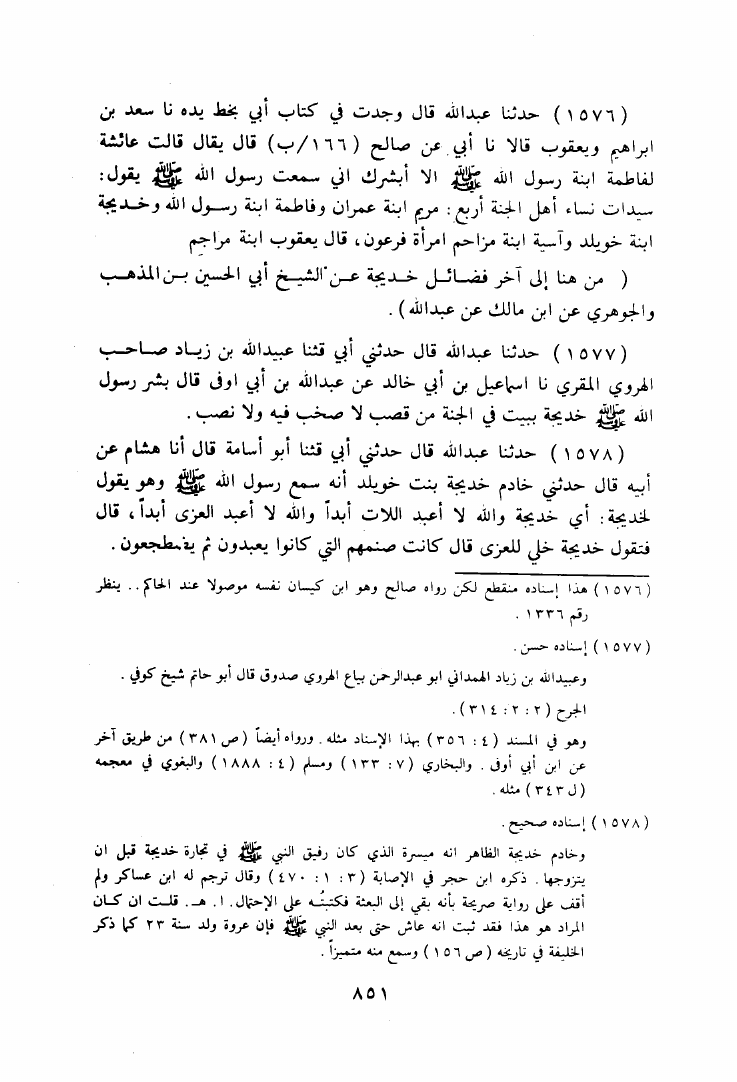 (١٥٧٦) حدثنا عبدالله قال وجدت في كتاب أبي بخط يده نا سعد بن
ابراهيم ويعقوب قالا نا أبي عن صالح (١٦٦/ب) قال يقال قالت عائشة
لفاطمة ابنة رسول الله ﷺ الا أبشرك اني سمعت رسول الله ﷺ يقول:
سيدات نساء أهل الجنة أربع: مريم ابنة عمران وفاطمة ابنة رسول الله وخديجة
ابنة خويلد وآسية ابنة مزاحم امرأة فرعون، قال يعقوب ابنة مراجم
( من هنا إلى آخر فضائل خديجة عن الشيخ أبي الحسين بن المذهب
والجوهري عن ابن مالك عن عبدالله).
(١٥٧٧) حدثنا عبدالله قال حدثني أبي قثنا عبيدالله بن زياد صاحب
الهروي المقري نا اسماعيل بن أبي خالد عن عبدالله بن أبي اوفى قال بشر رسول
الله ﷺ خديجة ببيت في الجنة من قصب لا صخب فيه ولا نصب.
(١٥٧٨) حدثنا عبدالله قال حدثني أبي قثنا أبو أسامة قال أنا هشام عن
أبيه قال حدثني خادم خديجة بنت خويلد أنه سمع رسول الله ﷺ وهو يقول
لخديجة: أي خديجة والله لا أعبد اللات أبداً والله لا أعبد العزى أبداً، قال
فتقول خديجة خلي للعزى قال كانت صنمهم التي كانوا يعبدون ثم يضطجعون.
(١٥٧٦) هذا إسناده منقطع لكن رواه صالح وهو ابن كيسان نفسه موصولا عند الحاكم.. ينظر
رقم ١٣٣٦.
(١٥٧٧) إسناده حسن.
وعبيدالله بن زياد الهمداني ابو عبدالرحمن بياع الهروي صدوق قال أبو حاتم شيخ كوفي.
الجرح (٢: ٢: ٣١٤).
وهو في المسند (٤: ٣٥٦) بهذا الإسناد مثله. ورواه أيضاً (ص ٣٨١) من طريق آخر
عن ابن أبي أوفى. والبخاري (٧: ١٣٣) ومسلم (٤: ١٨٨٨) والبغوي في معجمه
(ل ٣٤٣) مثله.
(١٥٧٨) إسناده صحيح.
وخادم خديجة الظاهر انه ميسرة الذي كان رفيق النبي ﷺ في تجارة خديجة قبل ان
يتزوجها. ذكره ابن حجر في الإصابة (٣: ١: ٤٧٠) وقال ترجم له ابن عساكر ولم
أقف على رواية صريحة بأنه بقي إلى البعثة فكتبتُه على الإحتمال. ا. هـ. قلت ان كان
المراد هو هذا فقد ثبت انه عاش حتى بعد النبي ﷺ فإن عروة ولد سنة ٢٣ كما ذكر
الخليفة في تاريخه (ص ١٥٦) وسمع منه متميزاً.
٨٥١